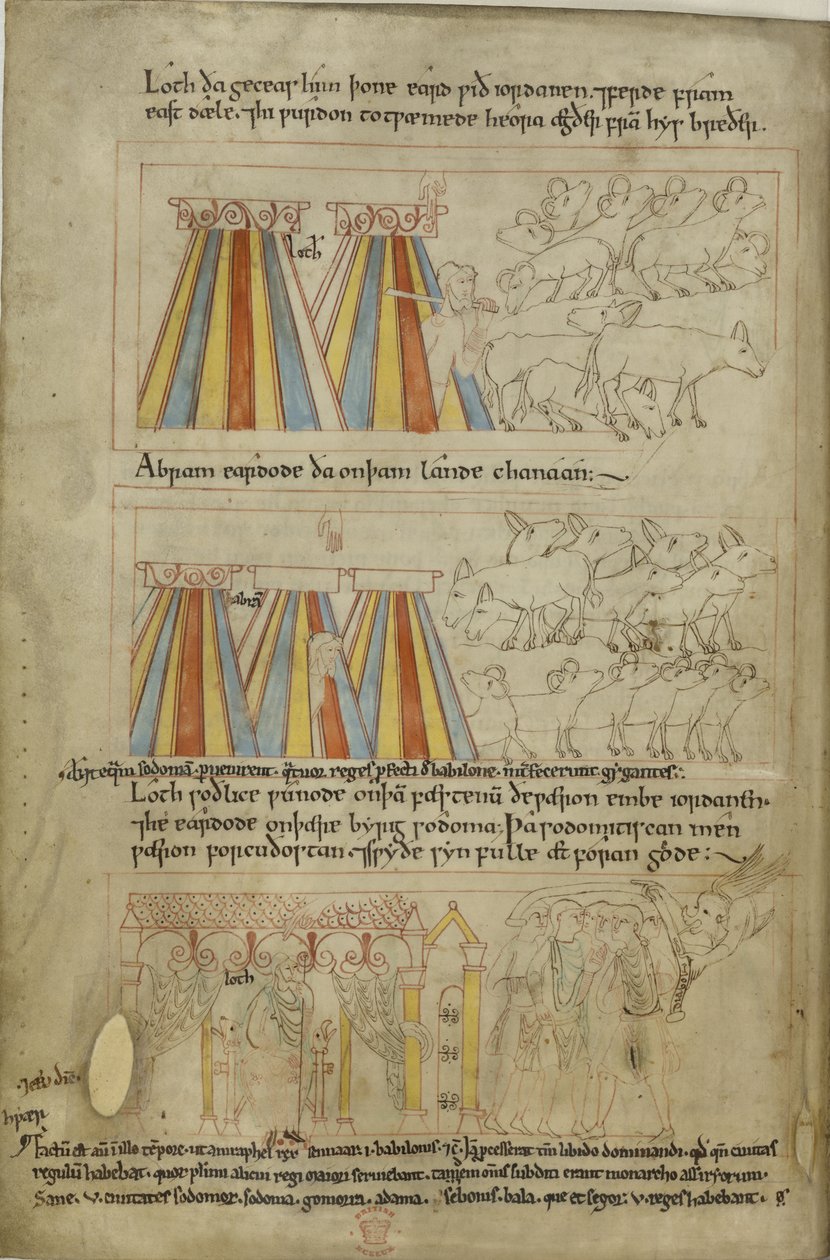 Loth ða geceas him þone eard ƿið iordanen. ⁊ ferde fram
east dæle. ⁊ hi ƿurdon totƿæmede heora ægðer frā hys breðer.
loth
Abram eardode ða on þam lande chanáán:
abrā
sodomā peruenirent. reges babilone. gygantes.
Loth soðlice ƿunode on þā fæstenū ðe ƿæron embe iordanen.
⁊ he eardode on þære byrig sodoma. Þa sodomitiscan men
ƿæron forcuðostan. ⁊ sƿyðe synfulle ætforan gode:
loth
Factū est aū in illo tēpore. ut amraphel rex sennaar .i. babilonis. ⁊c̄. processerat libido dominandi. ciuitas
regulum habebat. quor alicui regi maiori seruiebant. omīs subditi erant monarcho assiriorum.
Sane .v. ciuitates sodomor. sodoma. gomorra. adama. seboim. bala. que et segor. v. reges habebant.
BRITISH
MUSEUM